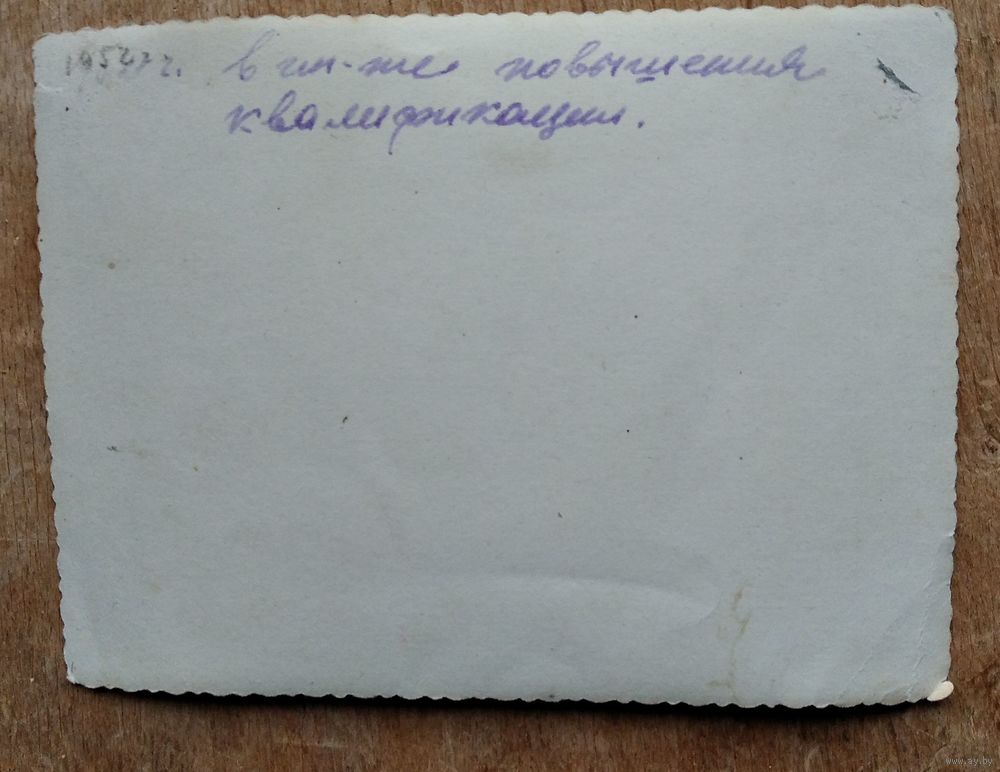 в ин-те повышения
квалификации.
www.ay.by